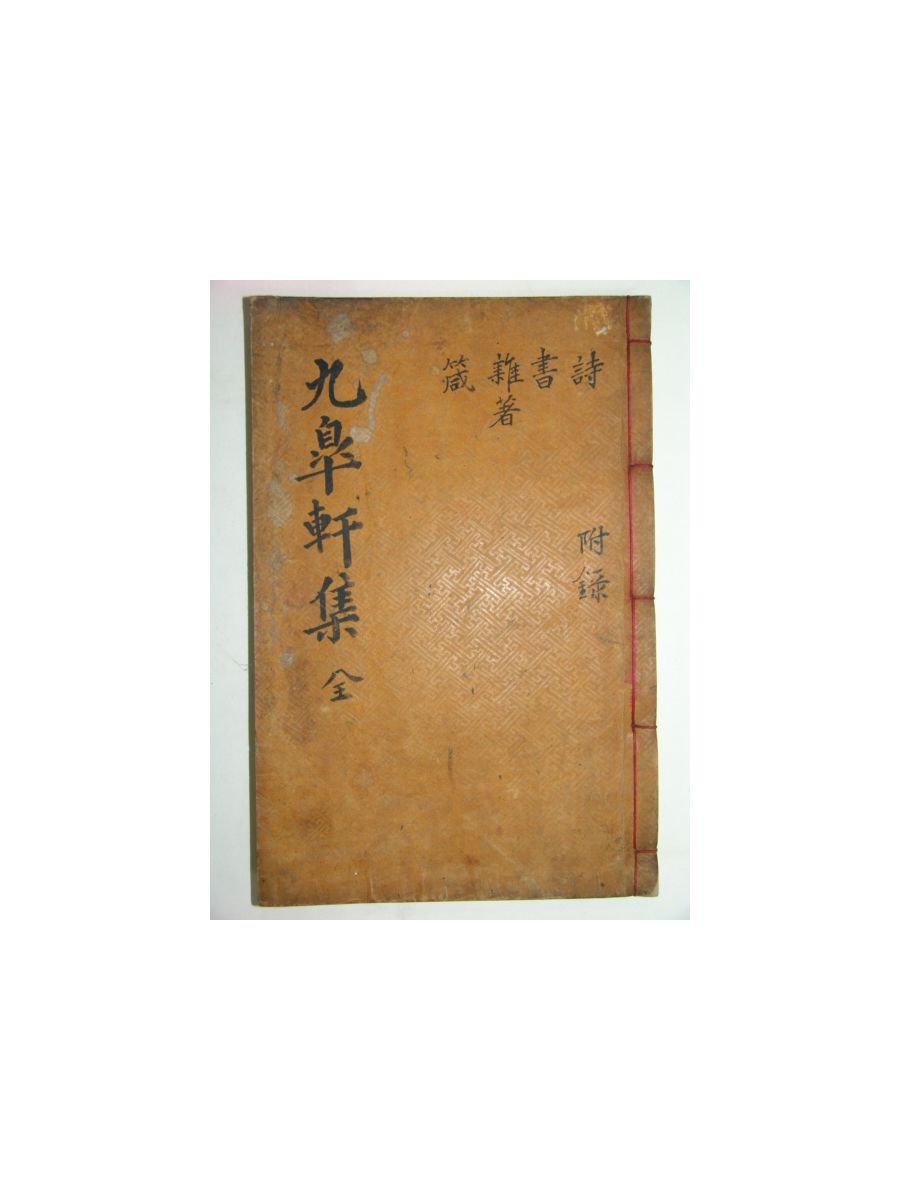 詩
書
雜著
箴
附録
九臯軒集 全